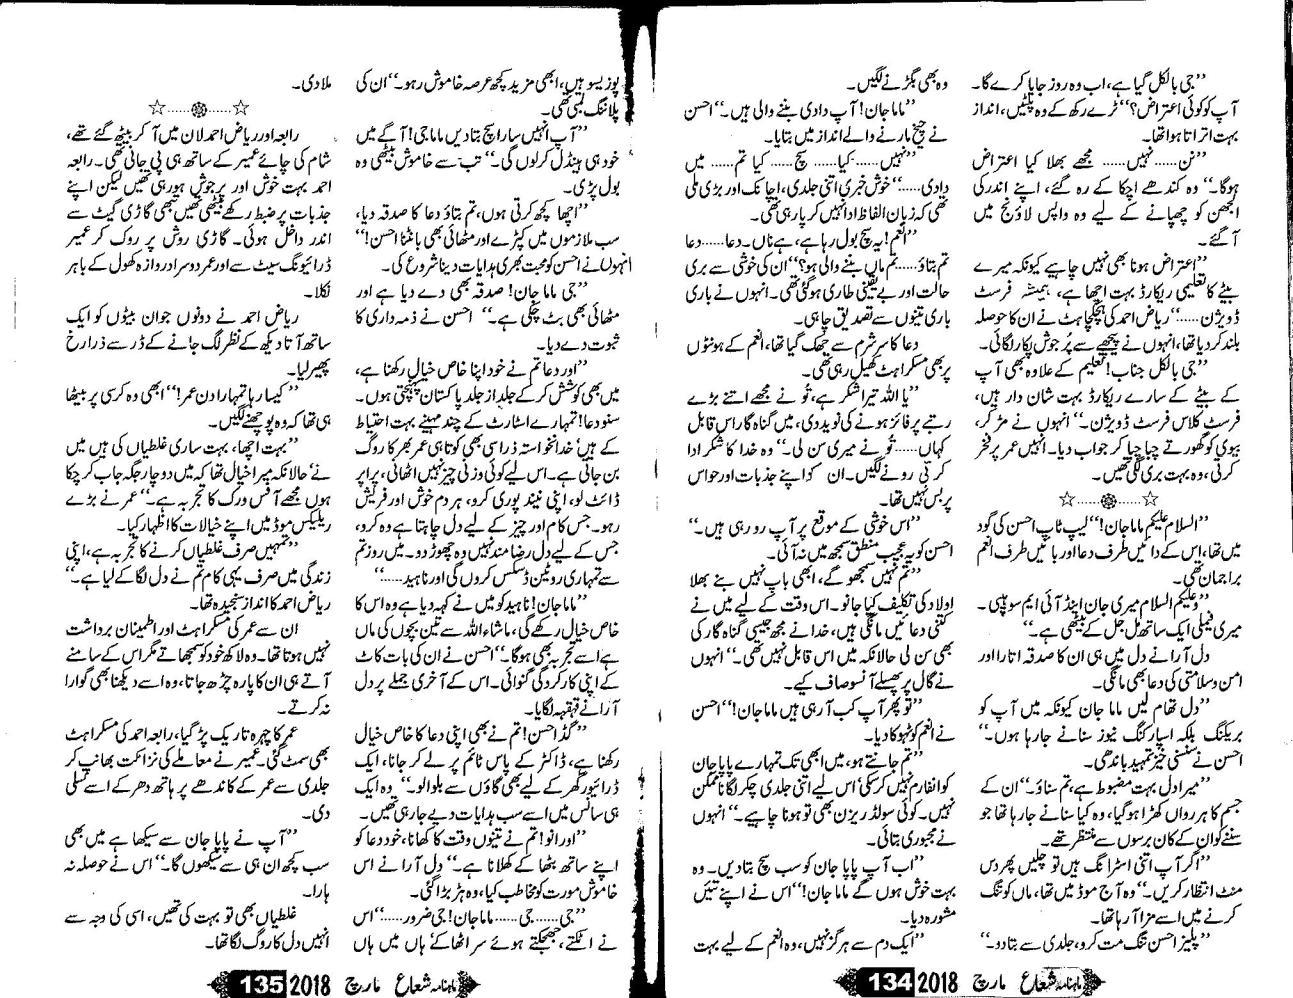 ”جی بالکل گیا ہے، اب وہ روز جایا کرے گا۔
آپ کو کوئی اعتراض؟“ ٹرے رکھ کے وہ پلٹیں، انداز
بہت اتراتا ہوا تھا۔
”نن......نہیں...... مجھے بھلا کیا اعتراض
ہوگا۔“ وہ کندھے اچکا کے رہ گئے، اپنے اندر کی
الجھن کو چھپانے کے لیے وہ واپس لاؤنج میں
آ گئے۔
”اعتراض ہونا بھی نہیں چاہیے کیونکہ میرے
بیٹے کا تعلیمی ریکارڈ بہت اچھا ہے، ہمیشہ فرسٹ
ڈویژن......“ ریاض احمد کی ہچکچاہٹ نے ان کا حوصلہ
بلند کر دیا تھا، انہوں نے پیچھے سے پُر جوش پکار لگائی۔
”جی بالکل جناب! تعلیم کے علاوہ بھی آپ
کے بیٹے کے سارے ریکارڈ بہت شان دار ہیں،
فرسٹ کلاس فرسٹ ڈویژن۔“ انہوں نے مڑ کر،
بیوی کو گھورتے چبا چبا کر جواب دیا۔ انہیں عمر پر فخر
کرتی وہ بہت بری لگی تھیں۔
☆......❁......☆
”السلام علیکم ماما جان!“ لیپ ٹاپ احسن کی گود
میں تھا، اس کے دائیں طرف دعا اور بائیں طرف انعم
براجمان تھی۔
”وعلیکم السلام میری جان اینڈ آئی ایم سو ہیپی۔
میری فیملی ایک ساتھ مل جل کے بیٹھی ہے۔“
دل آرا نے دل میں ہی ان کا صدقہ اتارا اور
امن و سلامتی کی دعا بھی مانگی۔
”دل تھام لیں ماما جان کیونکہ میں آپ کو
بریکنگ بلکہ اسپارکنگ نیوز سنانے جا رہا ہوں۔“
احسن نے سنسنی خیز تمہید باندھی۔
”میرا دل بہت مضبوط ہے، تم سناؤ۔“ ان کے
جسم کا ہر رواں کھڑا ہو گیا، وہ کیا سنانے جا رہا تھا جو
سننے کو ان کے کان برسوں سے منتظر تھے۔
”اگر آپ اتنی اسٹرانگ ہیں تو چلیں پھر دس
منٹ انتظار کریں۔“ وہ آج موڈ میں تھا، ماں کو تنگ
کرنے میں اسے مزا آ رہا تھا۔
”پلیز احسن تنگ مت کرو، جلدی سے بتا دو۔“
وہ بھی بگڑنے لگیں۔
”ماما جان! آپ دادی بننے والی ہیں۔“ احسن
نے چیخ مارنے والے انداز میں بتایا۔
”نہیں......کیا...... سچ...... کیا تم...... میں
دادی......“ خوش خبری اتنی جلدی، اچانک اور بڑی ملی
تھی کہ زبان الفاظ ادا نہیں کر پا رہی تھی۔
”انعم! یہ سچ بول رہا ہے، ہے ناں۔ دعا......دعا
تم بتاؤ......تم ماں بننے والی ہو؟“ ان کی خوشی سے بری
حالت اور بے یقینی طاری ہو گئی تھی۔ انہوں نے باری
باری تینوں سے تصدیق چاہی۔
دعا کا سر شرم سے جھک گیا تھا، انعم کے ہونٹوں
پر بھی مسکراہٹ کھیل رہی تھی۔
”یا اللہ تیرا شکر ہے، تُو نے مجھے اتنے بڑے
رتبے پر فائز ہونے کی نوید دی، میں گناہ گار اس قابل
کہاں...... تُو نے میری سن لی۔“ وہ خدا کا شکر ادا
کرتی رونے لگیں۔ ان کو اپنے جذبات اور حواس
پر بس نہیں تھا۔
”اس خوشی کے موقع پر آپ رو رہی ہیں۔“
احسن کو یہ عجیب منطق سمجھ میں نہ آئی۔
”تم نہیں سمجھو گے، ابھی باپ نہیں بنے بھلا
اولاد کی تکلیف کیا جانو۔ اس وقت کے لیے میں نے
کتنی دعائیں مانگی ہیں، خدا نے مجھ جیسی گناہ گار کی
بھی سن لی حالانکہ میں اس قابل نہیں تھی۔“ انہوں
نے گال پر پھسلے آنسو صاف کیے۔
”تو پھر آپ کب آ رہی ہیں ماما جان!“ احسن
نے انعم کو ٹہوکا دیا۔
”تم جانتے ہو، میں ابھی تک تمہارے پاپا جان
کو انفارم نہیں کر سکی اس لیے اتنی جلدی چکر لگانا ممکن
نہیں۔ کوئی سولڈ ریزن بھی تو ہونا چاہیے۔“ انہوں
نے مجبوری بتائی۔
”اب آپ پاپا جان کو سب سچ بتا دیں۔ وہ
بہت خوش ہوں گے ماما جان!“ اس نے اپنے تئیں
مشورہ دیا۔
”ایک دم سے ہرگز نہیں، وہ انعم کے لیے بہت
ماہنامہ شعاع مارچ 2018 134
پوزیسو ہیں، ابھی مزید کچھ عرصہ خاموش رہو۔“ ان کی
پلاننگ لمبی تھی۔
”آپ انہیں سارا سچ بتا دیں ماما جی! آگے میں
خود ہی ہینڈل کر لوں گی۔“ تب سے خاموش بیٹھی وہ
بول پڑی۔
”اچھا کچھ کرتی ہوں، تم بتاؤ دعا کا صدقہ دیا،
سب ملازموں میں کپڑے اور مٹھائی بھی بانٹنا احسن!“
انہوں نے احسن کو محبت بھری ہدایات دینا شروع کی۔
”جی ماما جان! صدقہ بھی دے دیا ہے اور
مٹھائی بھی بٹ چکی ہے۔“ احسن نے ذمہ داری کا
ثبوت دے دیا۔
”اور دعا تم نے خود اپنا خاص خیال رکھنا ہے،
میں بھی کوشش کر کے جلد از جلد پاکستان پہنچتی ہوں۔
سنو دعا! تمہارے اسٹارٹ کے چند مہینے بہت احتیاط
کے ہیں خدانخواستہ ذرا سی بھی کوتاہی عمر بھر کا روگ
بن جاتی ہے۔ اس لیے کوئی وزنی چیز نہیں اٹھانی، پراپر
ڈائٹ لو، اپنی نیند پوری کرو، ہر دم خوش اور فریش
رہو۔ جس کام اور چیز کے لیے دل چاہتا ہے وہ کرو،
جس کے لیے دل رضا مند نہیں وہ چھوڑ دو۔ میں روز تم
سے تمہاری روٹین ڈسکس کروں گی اور ناہید......“
”ماما جان! ناہید کو میں نے کہہ دیا ہے وہ اس کا
خاص خیال رکھے گی، ماشاء اللہ سے تین بچوں کی ماں
ہے اسے تجربہ بھی ہوگا۔“ احسن نے ان کی بات کاٹ
کے اپنی کارکردگی گنوائی۔ اس کے آخری جملے پر دل
آرا نے قہقہہ لگایا۔
”گڈ احسن! تم نے بھی اپنی دعا کا خاص خیال
رکھنا ہے، ڈاکٹر کے پاس ٹائم پر لے کر جانا، ایک
ڈرائیور گھر کے لیے بھی گاؤں سے بلوالو۔“ وہ ایک
ہی سانس میں اسے سب ہدایات دیے جا رہی تھیں۔
”اور انو! تم نے تینوں وقت کا کھانا، خود دعا کو
اپنے ساتھ بٹھا کے کھلانا ہے۔“ دل آرا نے اس
خاموش مورت کو مخاطب کیا، وہ ہڑبڑا گئی۔
”جی......جی......ماما جان! جی ضرور......“ اس
نے اٹکتے، جھجکتے ہوئے سر اٹھا کے ہاں میں ہاں
ملا دی۔
☆......❁......☆
رابعہ اور ریاض احمد لان میں آ کر بیٹھ گئے تھے،
شام کی چائے عمیر کے ساتھ ہی پی جاتی تھی۔ رابعہ
احمد بہت خوش اور پرجوش ہو رہی تھیں لیکن اپنے
جذبات پر ضبط رکھے بیٹھی تھیں تبھی گاڑی گیٹ سے
اندر داخل ہوئی۔ گاڑی روش پر روک کر عمیر
ڈرائیونگ سیٹ سے اور عمر دوسرا دروازہ کھول کے باہر
نکلا۔
ریاض احمد نے دونوں جوان بیٹوں کو ایک
ساتھ آتا دیکھ کے نظر لگ جانے کے ڈر سے ذرا رخ
پھیر لیا۔
”کیسا رہا تمہارا دن عمر!“ ابھی وہ کرسی پر بیٹھا
ہی تھا کہ وہ پوچھنے لگیں۔
”بہت اچھا، بہت ساری غلطیاں کی ہیں میں
نے حالانکہ میرا خیال تھا کہ میں دو چار جگہ جاب کر چکا
ہوں مجھے آفس ورک کا تجربہ ہے۔“ عمر نے بڑے
ریلیکس موڈ میں اپنے خیالات کا اظہار کیا۔
”تمہیں صرف غلطیاں کرنے کا تجربہ ہے، اپنی
زندگی میں صرف یہی کام تم نے دل لگا کے لیا ہے۔“
ریاض احمد کا انداز سنجیدہ تھا۔
ان سے عمر کی مسکراہٹ اور اطمینان برداشت
نہیں ہوتا تھا۔ وہ لاکھ خود کو سمجھاتے مگر اس کے سامنے
آتے ہی ان کا پارہ چڑھ جاتا، وہ اسے دیکھنا بھی گوارا
نہ کرتے۔
عمر کا چہرہ تاریک پڑ گیا، رابعہ احمد کی مسکراہٹ
بھی سمٹ گئی۔ عمیر نے معاملے کی نزاکت بھانپ کر
جلدی سے عمر کے کاندھے پر ہاتھ دھر کے اسے تسلی
دی۔
”آپ نے پاپا جان سے سیکھا ہے میں بھی
سب کچھ ان ہی سے سیکھوں گا۔“ اس نے حوصلہ نہ
ہارا۔
غلطیاں بھی تو بہت کی تھیں، اسی کی وجہ سے
انہیں دل کا روگ لگا تھا۔
ماہنامہ شعاع مارچ 2018 135